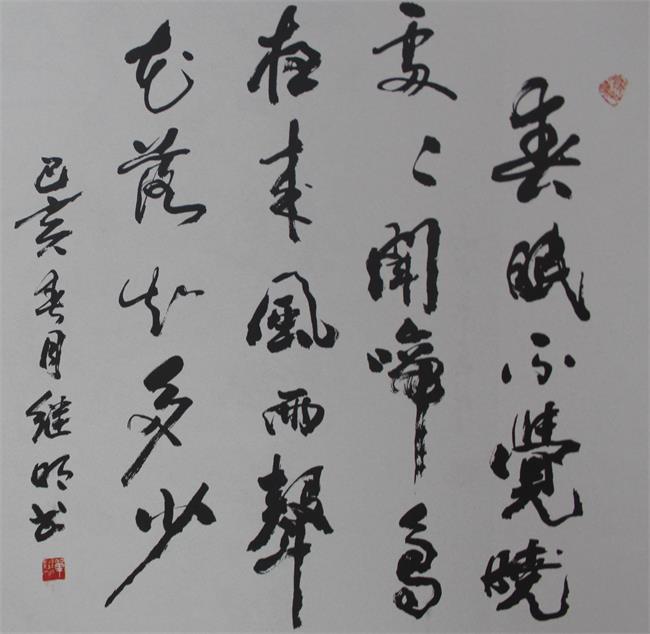 春眠不覺曉
處〻聞啼鳥
夜来風雨聲
花落知多少
己亥春月繼明书